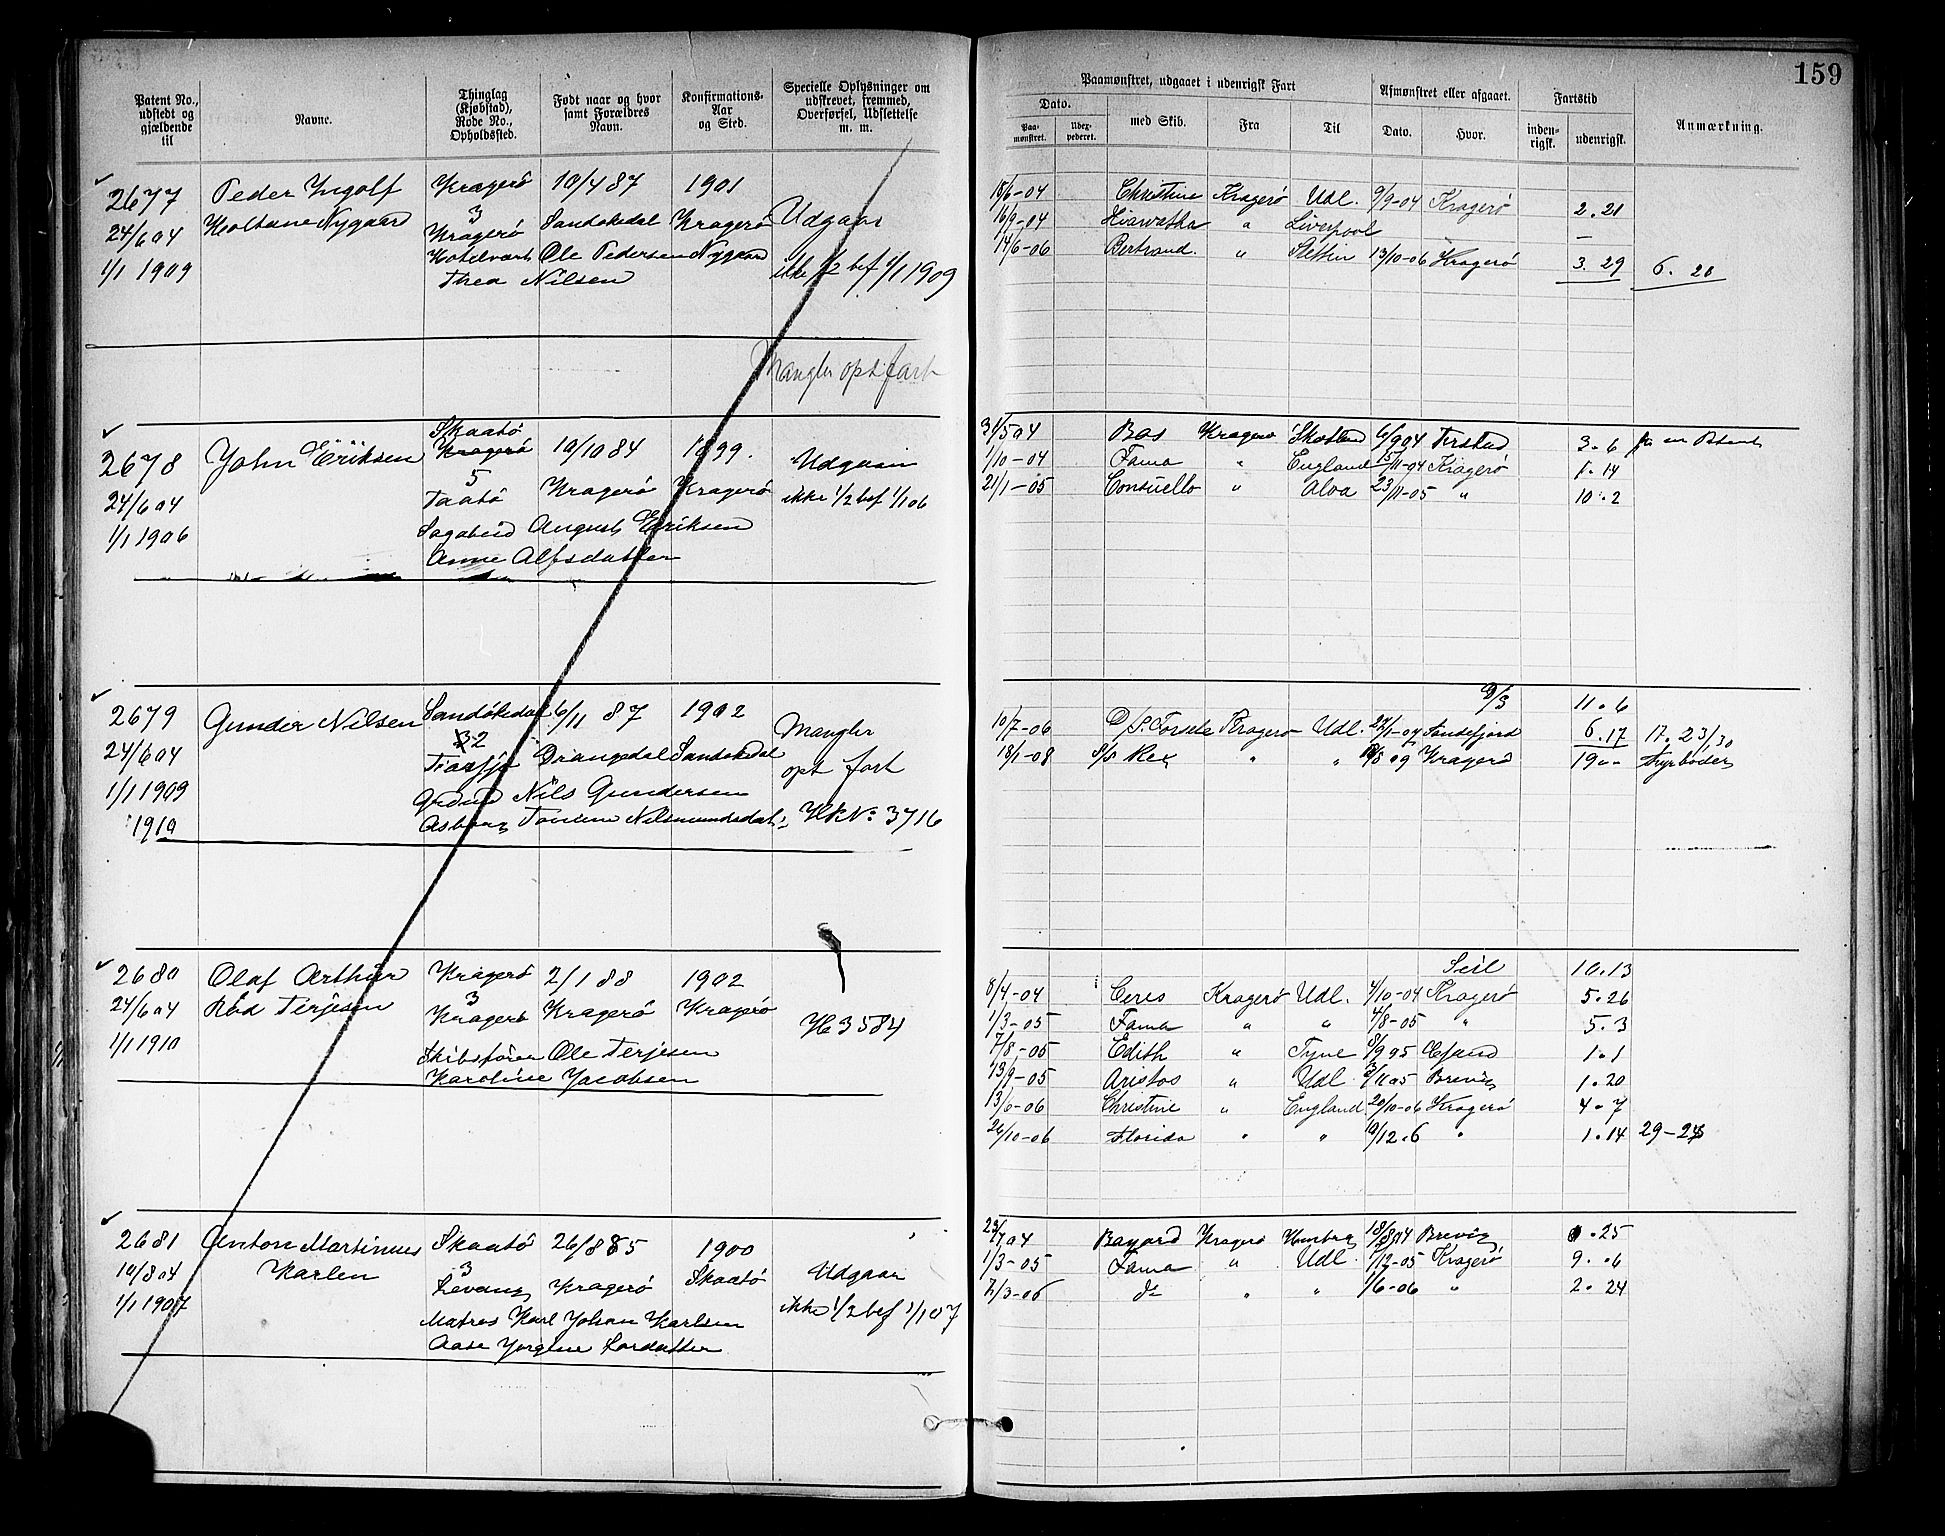 159
Patent No., udstedt og gjældende til
Navne.
Thinglag (Kjøbstad), Rode No., Opholdssted.
Født naar og hvor samt Forældres Navn.
Konfirmations-Aar og Sted.
Specielle Oplysninger om udskrevet, fremmed, Overførsel, Udslettelse m. m.
Paamønstret, udgaaet i udenrigsk Fart
Afmønstret eller afgaaet.
Fartstid
Anmærkning.
Dato.
med Skib.
Fra
Til
Dato.
Hvor.
inden-rigsk.
udenrigsk.
Paa-mønstret.
Uder-pederet.
2677 Peder Yngolf Kragerö 10/4 87 1901
24/6 04 Holtane Nygaar 3 Sandökedal Kragerö Udgaar
Kragerö
1/1 1909 Ole Pedersen Nygaard ikke 1/2 bef 1/1 1909
Thea Nilsen
18/6-04 Christine Kragerö Udl. 9/9-04 Kragerö 2.21
16/9-04 Hiawatha " Liverpool —
14/6-06 Bertrand. " Stettin 13/10-06 Kragerö 3.29 6.20
Mangler opt fart
2678 John Eriksen Skaatö Kragerö 10/10 84 1899. Udgaar
24/6 04 5 Taatö Kragerö Kragerö ikke 1/2 bef 1/1 06
1/1 1906 August Eriksen
Anne Alfsdatter
31/5 04 Bas Kragerö Skotland 6/9 04 3.6
1/10-04 Fama " England 15/11-04 Kragerö 1.14
21/1-05 Consuello " Aloa 23/11-05 " 10.2
2679 Gunder Nilsen Sandökedal 6/11 87 1902 Mangler
24/6 04 32 Drangedal Sandökedal opt fart
1/1 1909 Nils Gundersen
1910 HkNo 3716
9/3 11.6
10/7-06 Kragerö Udl. Sandefjord 6.17 17.23/30
18/1-08 S/S Rex " " 09 Kragerö 19 " - fyrböder
2680 Olaf Arthur Kragerö 2/1 88 1902
24/6 04 Röd Terjesen 3 Kragerö Kragerö Kragerö H 3584
1/1 1910 Skibsförer Ole Terjesen
Karoline Jacobsen
Seil 10.13
8/4-04 Ceres Kragerö Udl. 4/10-04 Kragerö 5.26
1/3-05 Fama " " 4/8-05 " 5.3
7/8-05 Edith " Tyne 8/9 05 1.1
13/9-05 Aristos " Udl. 3/11 05 Brevig 1.20
13/6-06 Christine " England 20/10-06 Kragerö 4.7
26/10-06 Florida " " 10/12.6 " 1.14 29-24
2681 Anton Martinius Skaatö 26/8 85 1900
10/8 04 Karlen 3 Levang Kragerö Skaatö Udgaar
1/1 1907 Matros Karl Johan Karlsen ikke 1/2 bef 1/1 07
Aase Jorgine Larsdatter
23/7 04 Bayard Kragerö Hamburg 18/8 04 Brevig 0.25
1/3-05 Fama " Udl. 1/12-05 Kragerö 9.06
7/3-06 do " " 1/6-06 " 2.24